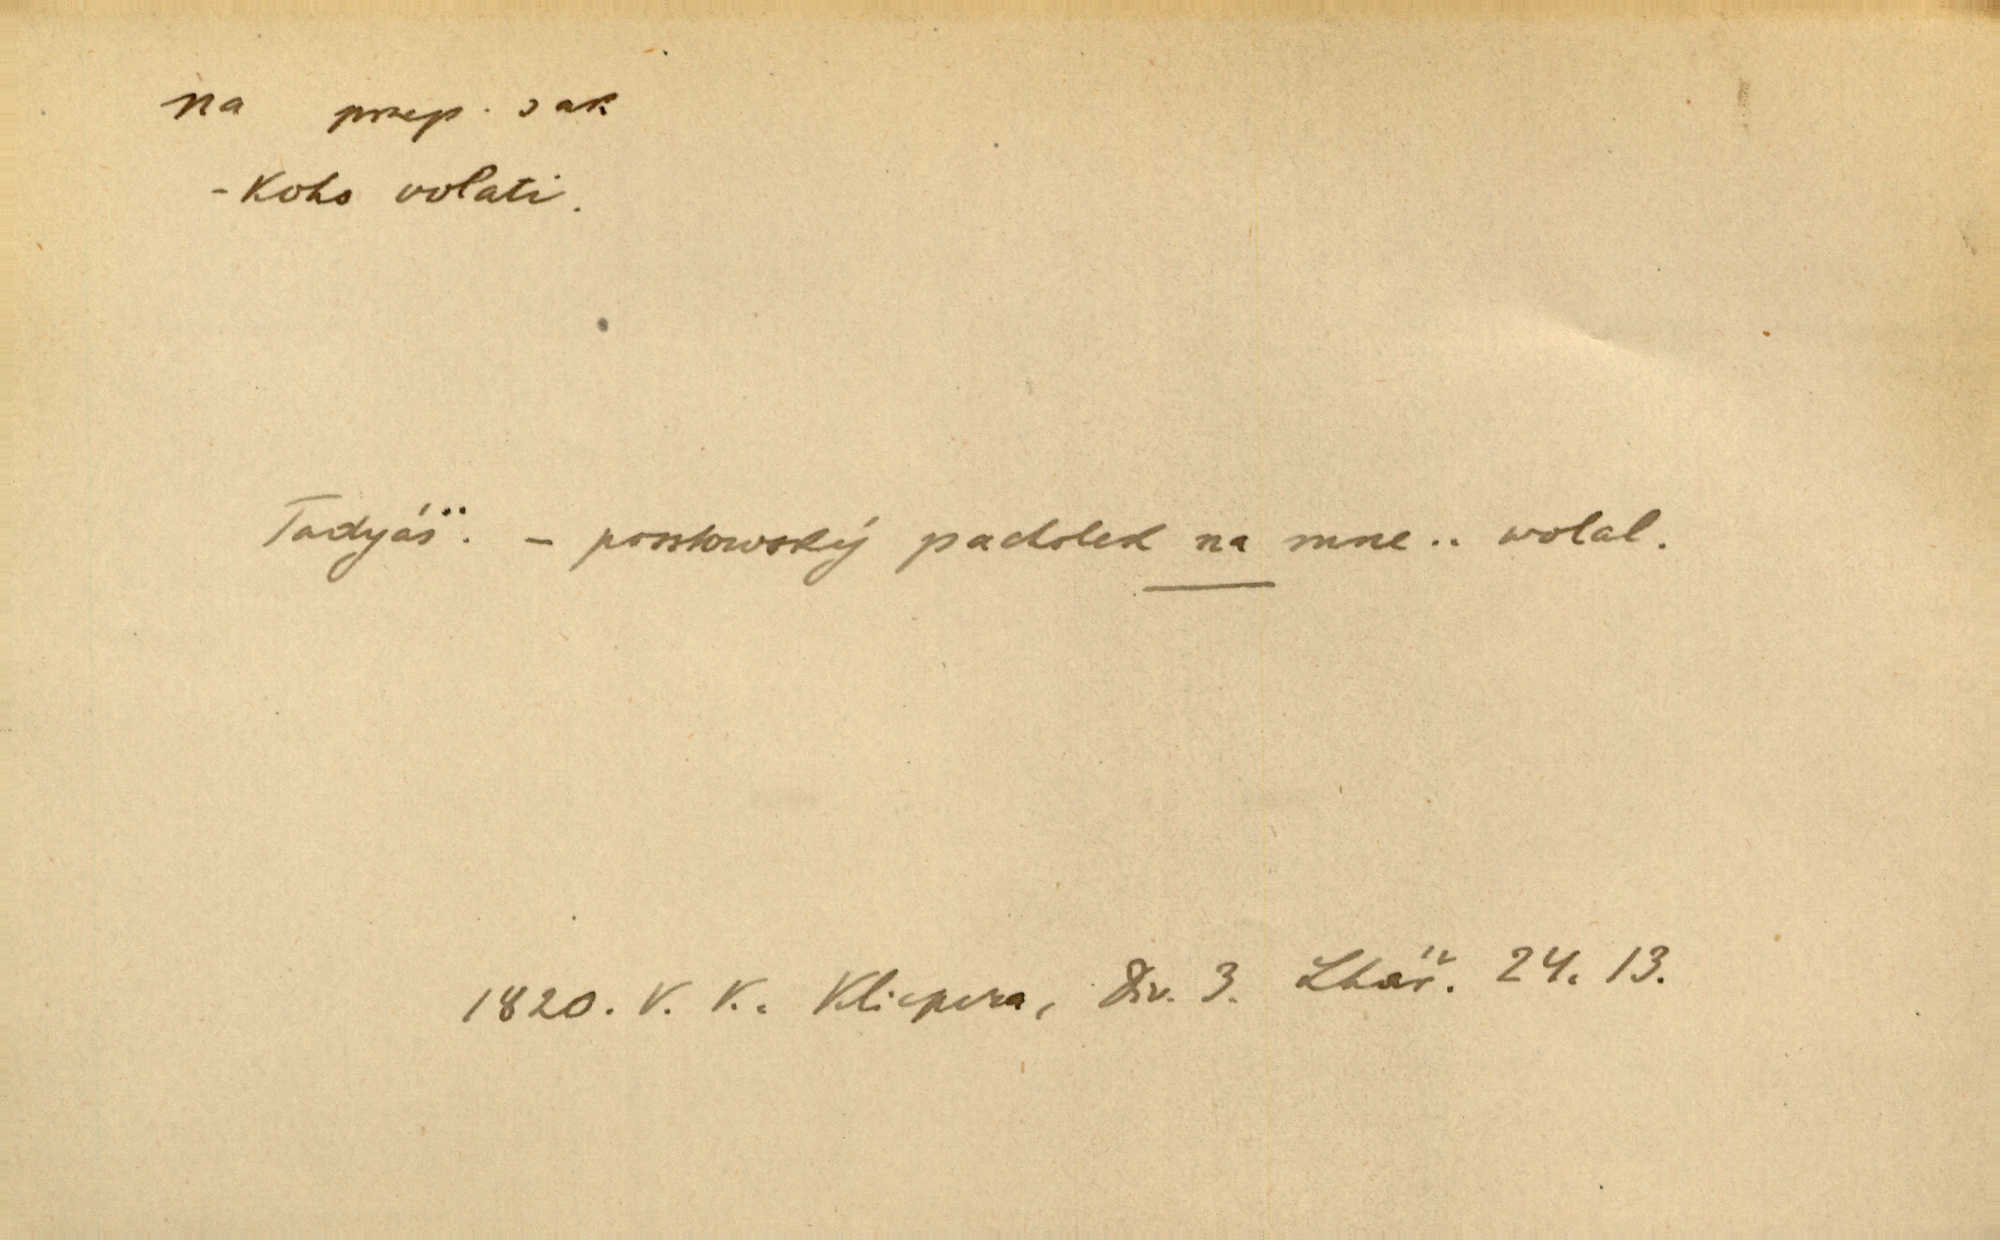 na prep. s ak
- koho volati.
Tadyáš. – postowský pacholek na mne .. wolal.
1820. V. K. Klicpera, Div. 3. Lhář. 24. 13.